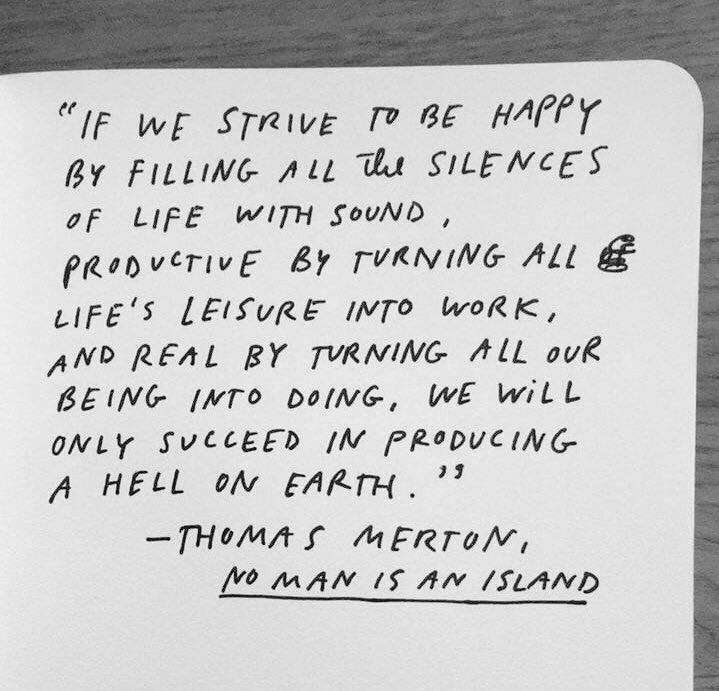 "IF WE STRIVE TO BE HAPPY
BY FILLING ALL the SILENCES
OF LIFE WITH SOUND,
PRODUCTIVE BY TURNING ALL
LIFE'S LEISURE INTO WORK,
AND REAL BY TURNING ALL OUR
BEING INTO DOING, WE WILL
ONLY SUCCEED IN PRODUCING
A HELL ON EARTH."
—THOMAS MERTON,
NO MAN IS AN ISLAND